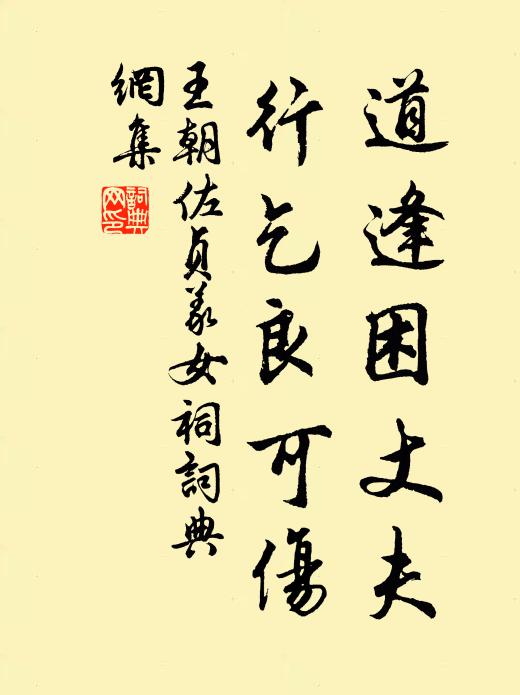 道逢困丈夫
行乞良可傷
王朝佐貞義女祠詞典
網集
詞典
网印